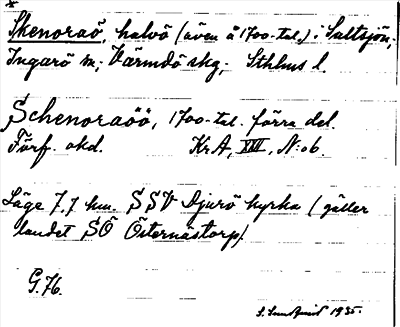 *
Skenoraö, halvö (även å 1700-tal.) i Saltsjön;
Ingarö sn; Värmdö skg; Sthlms l.
Schenoraöö, 1700-tal. förra del.
Förf. okd. Kr.A, XIII, N:o 6.
Läge 7,7 km. SSV Djurö kyrka (gäller
landet SÖ Östernästorp).
G. 76.
S. Sundqvist 1935.